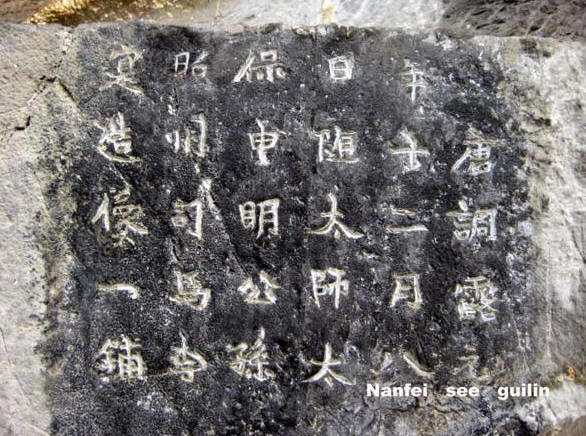 唐調露元
年十二月八
日隨太師太
保申明公孫
昭州司馬李
寔造像一鋪
Nanfei see guilin